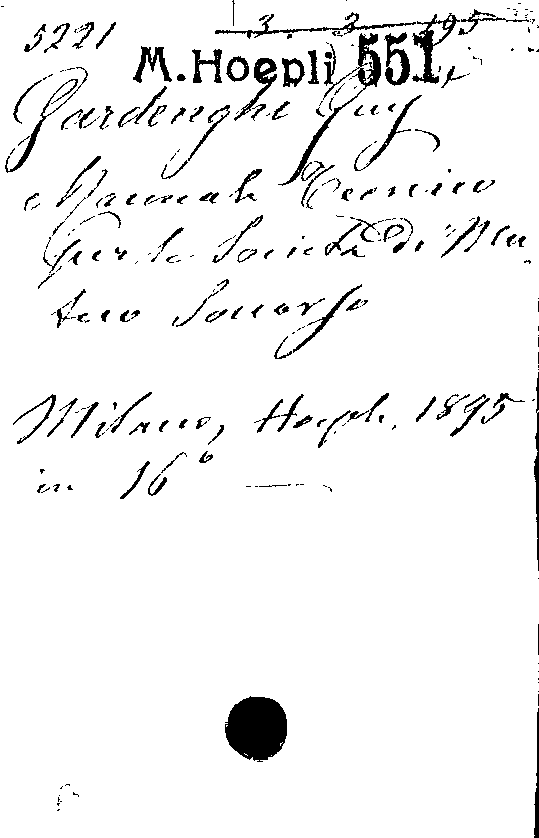 5221 3. 3. 195
M. Hoepli 551
Gardenghi Guy
Manuale Tecnico
per le Società di Mu-
tuo Soccorso
Milano, Hoepli, 1895
in 16°